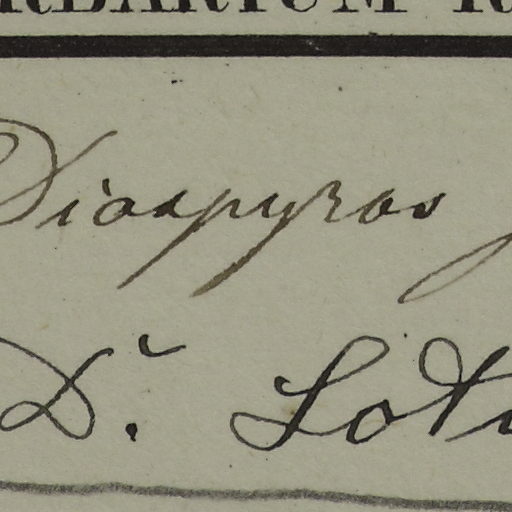 RBARIUM R
Diospyros
Dr. Lotu